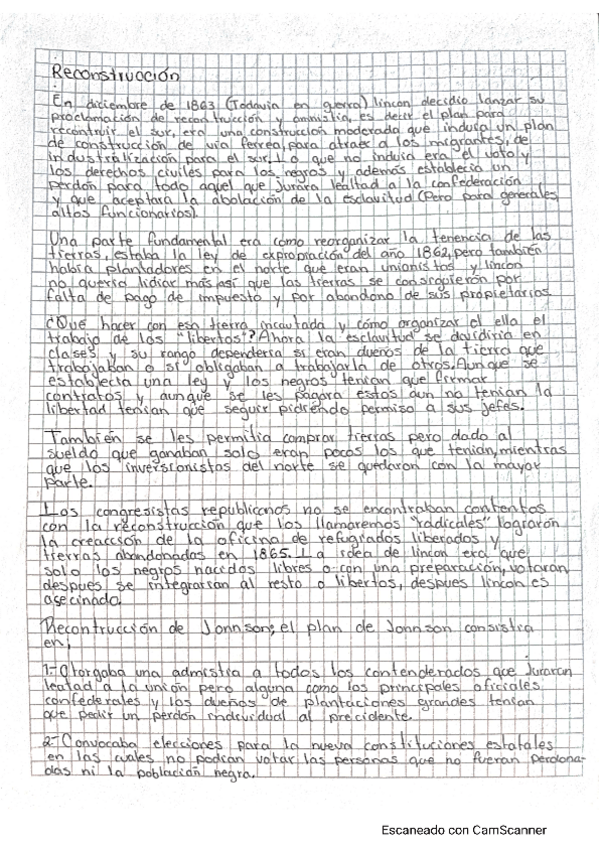 Reconstruvoción
En diciembre de 1863 (Todavia en guerra) lincon decidio lanzar su
proclamación de recontrucción y amnistia, es decir el plan para
recontruir el sur, era una construcción moderada que induia un plan
de construcción de via ferrea, para atraer a los migrantes, de
industrialización para el sur. Lo que no induia era el voto y
los derechos civiles para los negros y además establecia un
perdón para todo aquel que jurara lealtad a la confederación
y que aceptara la abolación de la esclavitud (Pero para generales,
altos funcionarios).
Una parte fundamental era como reorganizar la tenencia de las
tierras, estaba la ley de expropiación del año 1862, pero también
habia plantadores en el norte que eran unionistas y lincon
no queria lidiar más asi que las tierras se consicopieron por
falta de pago de impuesto y por abandono de sus propietarios
¿Qué hacer con esa tierra incautada y cómo organizar el ella el
trabajo de los "libertos"? Ahora la esclavitud se dividiria en
clases y su rango dependeria si eran dueños de la tierra que
trabajaban o si obligaban a trabajarla de otros. Aunque se
establecia una ley y los negros tenian que firmar
contratos y aunque se les pagara estos aun no tenian la
libertad tenian que seguir pidiendo permiso a sus jefes.
También se les permitia comprar tierras pero dado al
sueldo que ganaban solo eran pocos los que tenian, mientras
que los inversionistas del norte se quedaron con la mayor
parte.
Los congresistas republicanos no se encontraban contentos
con la reconstrucción que los llamaremos "radicales" lograron
la creacción de la oficina de refugiados liberados y
tierras abandonadas en 1865. La idea de lincon era que
solo los negros nacidos libres o con una preparación, votaran
despues se integrarian al resto o libertos, despues lincon es
asecinado.
Recontrucción de Jonnson; el plan de Jonnson consistia
en;
1.- Otorgaba una admistia a todos los contenderados que juraran
leatad a la unión pero alguna como los principales oficiales
confederales y los dueños de plantaciones grandes tenian
que pedir un perdón individual al precidente.
2.- Convocaba elecciones para la nueva constituciones estatales
en las cuales no podian votar las personas que no fueran perdona-
das ni la población negra.
Escaneado con CamScanner